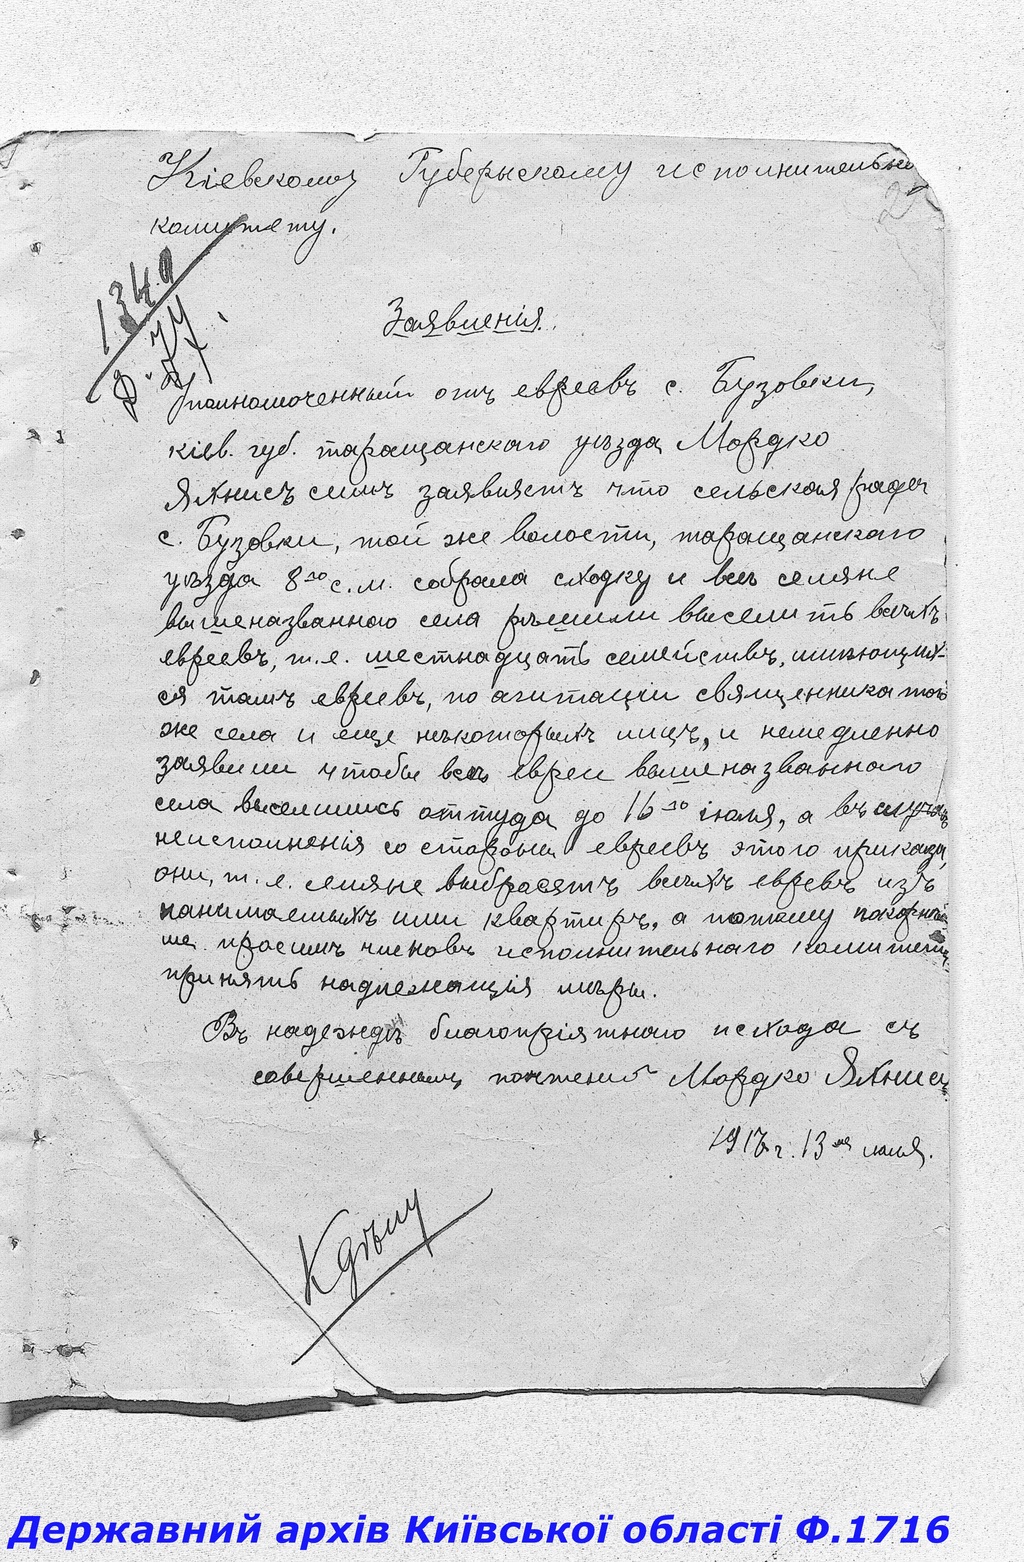 Кіевскому Губернскому исполнительно
комитету.
2
1340
Заявленія.
Уполномоченный отъ евреевъ с. Бузовки,
кіев. губ. таращанскаго уѣзда Мордко
Яхнисъ симъ заявляетъ что сельская рада
с. Бузовки, той же волости, таращанскаго
уѣзда 8го с.м. собрала сходку и всѣ селяне
вышеназваннаго села рѣшили выселить всѣхъ
евреевъ, т.е. шестнадцать семействъ, имѣющих-
ся тамъ евреевъ, по агитаціи священника той
же села и еще нѣкоторыхъ лицъ, и немедленно
заявили чтобы всѣ евреи вышеназваннаго
села выселились оттуда до 16го іюля, а въ случаѣ
неисполненія со стороны евреевъ этого приказа,
они, т.е. селяне выбрасятъ всѣхъ евревъ изъ
нанимаемыхъ ими квартиръ, а потому покорнѣй
ше просимъ членовъ исполнительнаго комитета
принять надлежащія мѣры.
Въ надеждѣ благопріятнаго исхода съ
совершеннымъ почтеніем Мордко Яхнисъ
1917 г. 13го июля.
К дѣлу
Державний архів Київської області Ф.1716